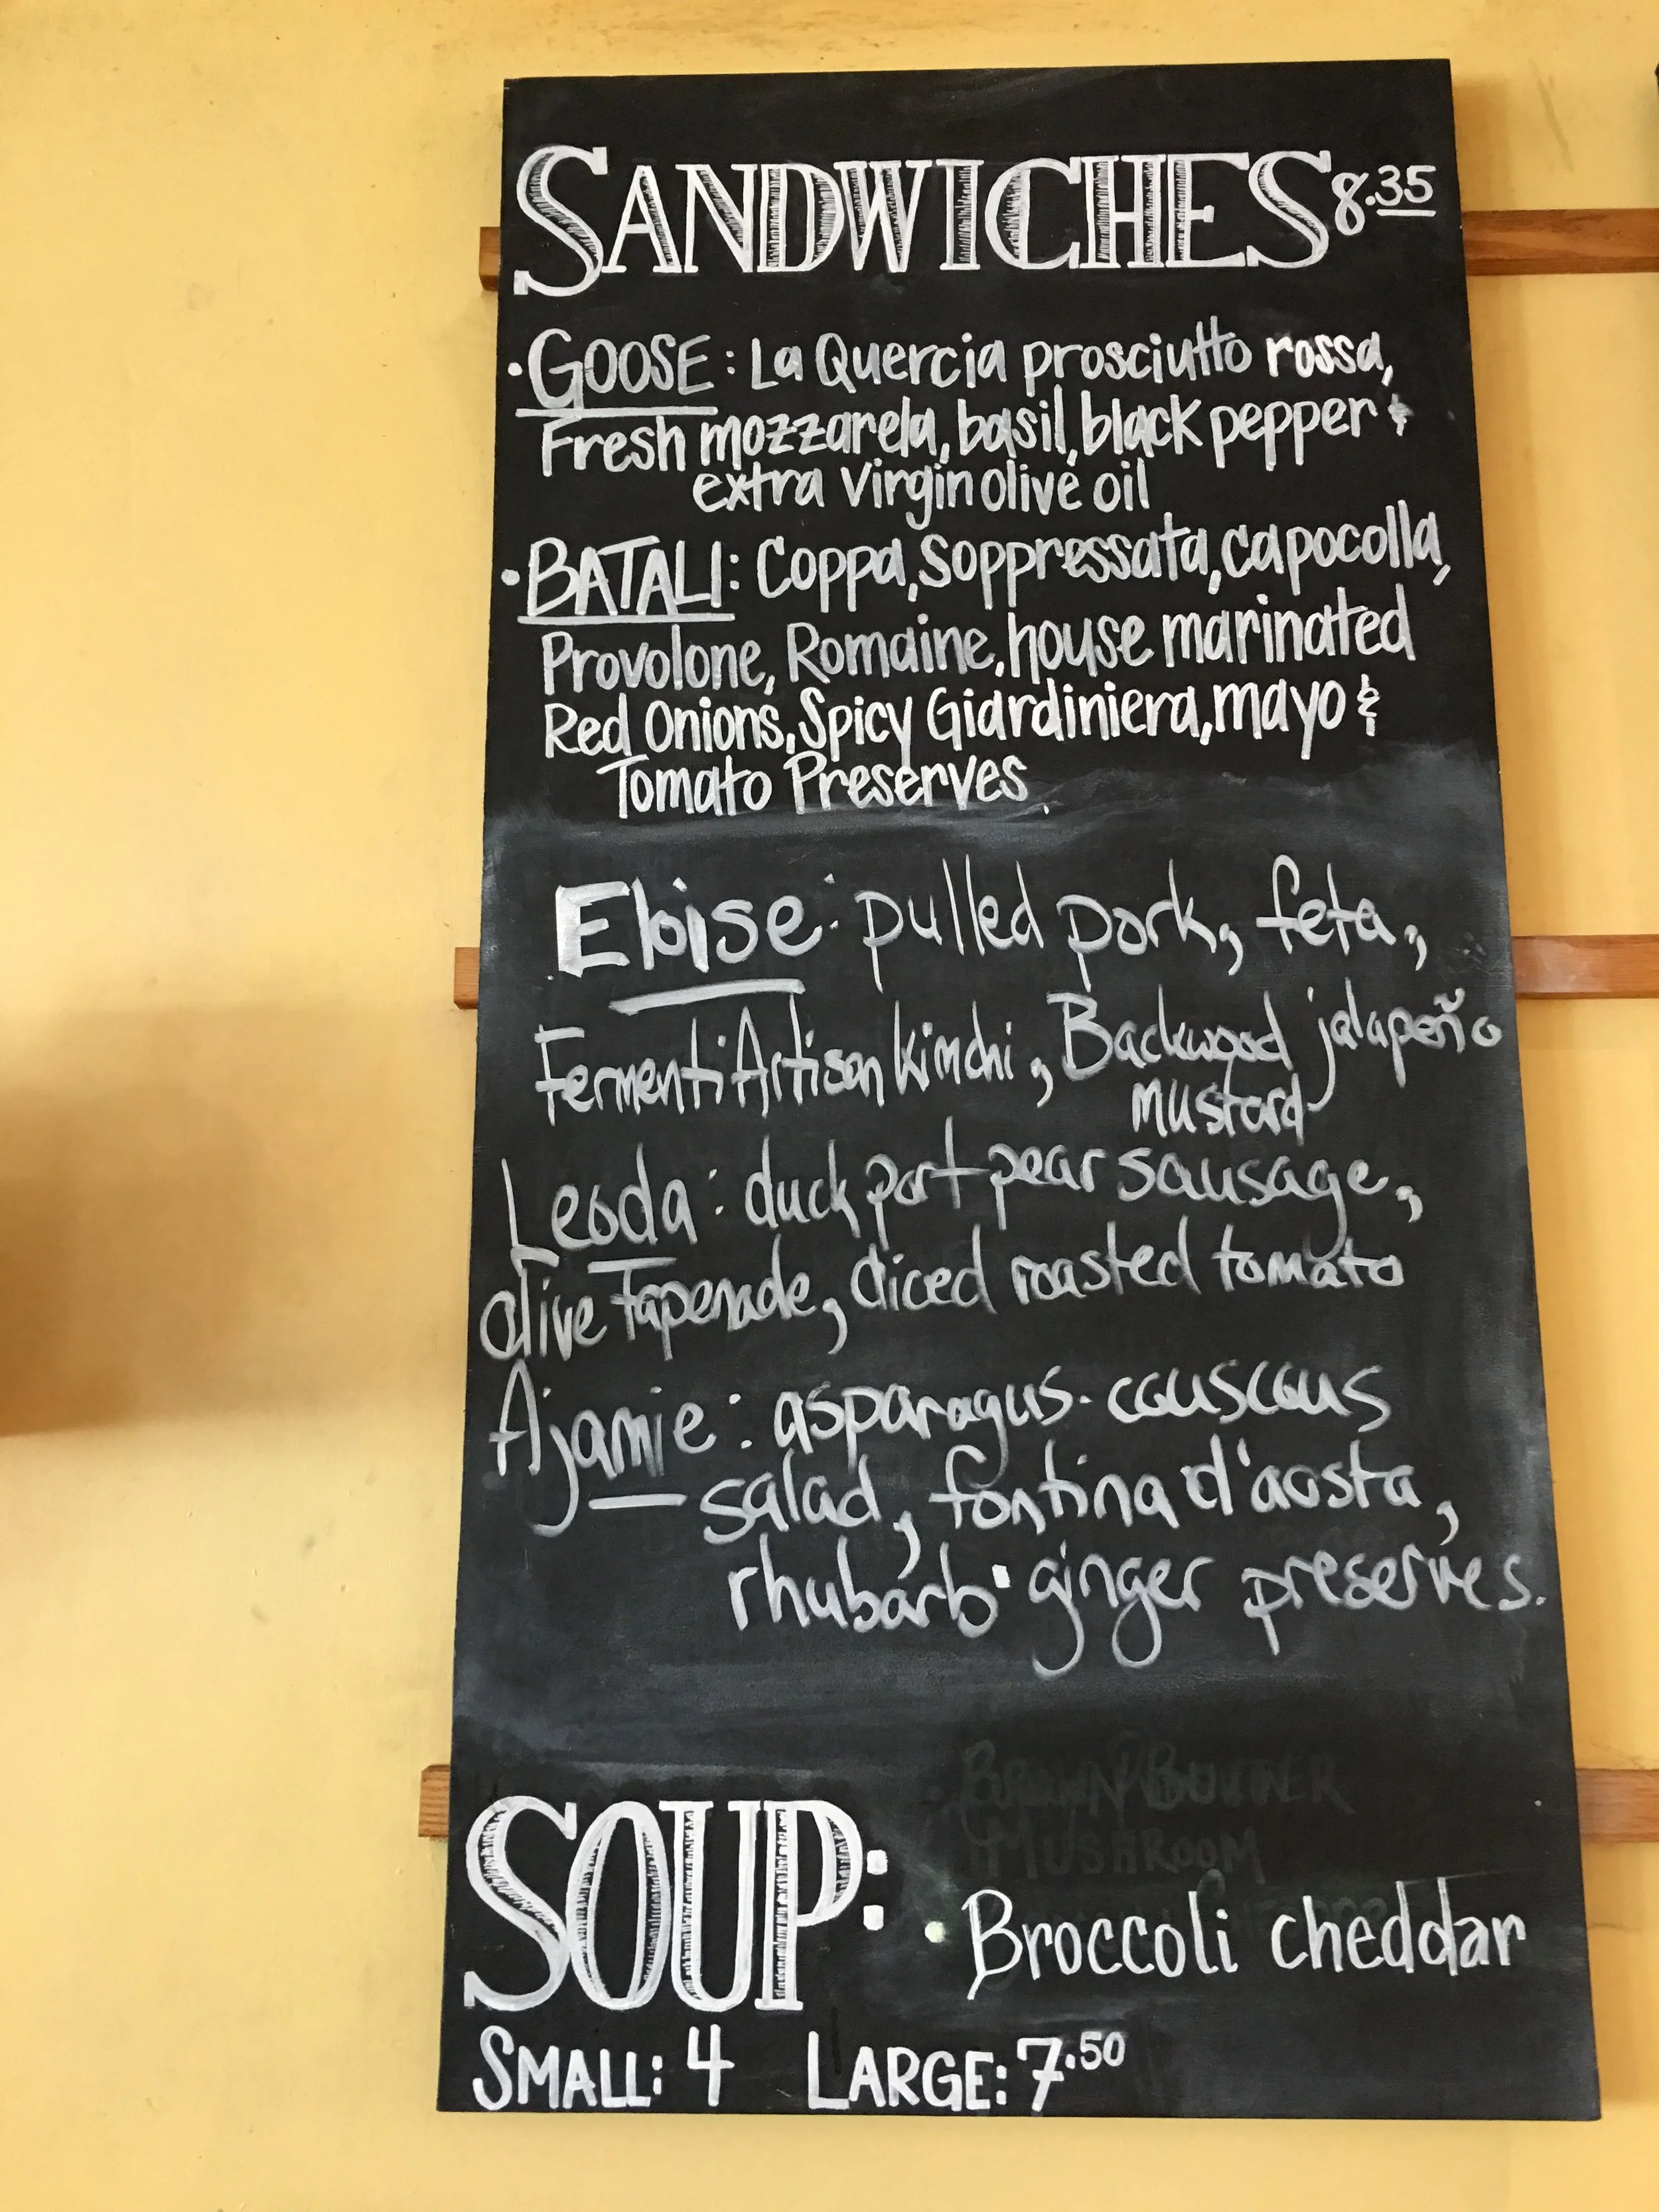 SANDWICHES 8.35
·GOOSE: La Quercia prosciutto rossa,
Fresh mozzarela, basil, black pepper &
extra Virgin olive oil
·BATALI: Coppa, Soppressata, capocolla,
Provolone, Romaine, house marinated
Red Onions, Spicy Giardiniera, mayo &
Tomato Preserves.
Eloise: pulled pork, feta,
Fermenti Artisan kimchi, Backwood jalapeño
mustard
Leoda: duck port pear sausage,
olive Tapenade, diced roasted tomato
Ajamie: asparagus-couscous
salad, fontina d'aosta,
rhubarb·ginger preserves.
BROWN BUTTER
MUSHROOM
SOUP: · Broccoli cheddar
SMALL: 4 LARGE: 7.50